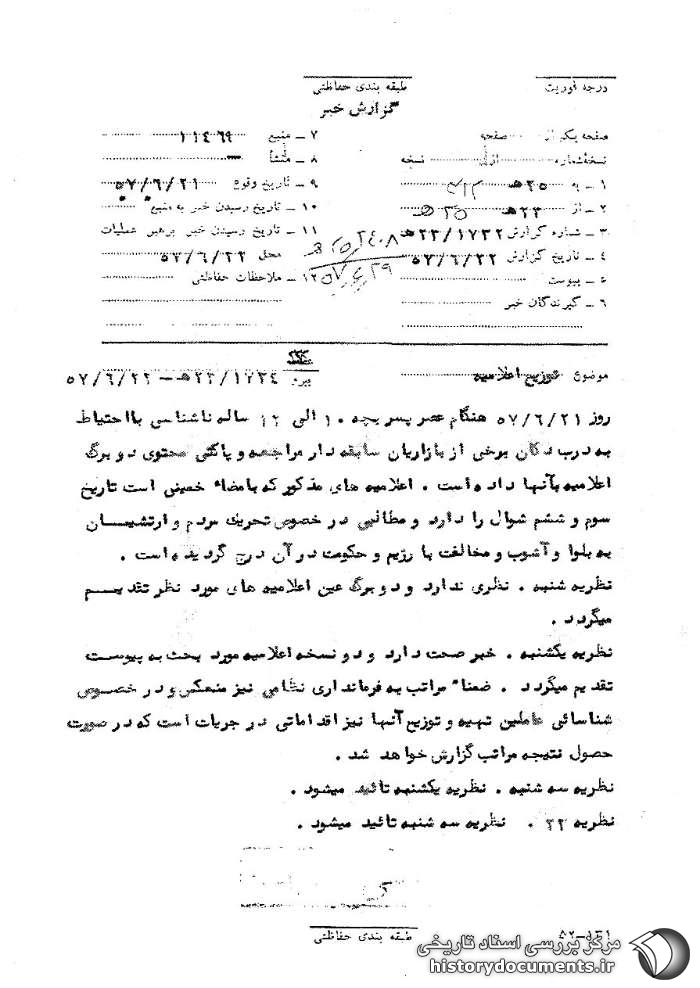 درجه فوریت
طبقه بندی حفاظتی
گزارش خبر
صفحه یک از صفحه
نسخه شماره از نسخه
۱ ـ به ۲۵ هـ
۲ ـ از ۲۳ هـ ۲۵ هـ
۳ ـ شماره گزارش ۲۳/۱۷۳۲ هـ
۴ ـ تاریخ گزارش ۵۷/۶/۲۲
۵ ـ پیوست
۶ ـ گیرندگان خبر
۷ ـ منبع ۱۱۴۶۹
۸ ـ منشأ —
۹ ـ تاریخ وقوع ۵۷/۶/۲۱
۱۰ ـ تاریخ رسیدن خبر به منبع
۱۱ ـ تاریخ رسیدن خبر برهبر عملیات
محل ۵۷/۶/۲۲
۱۲ ـ ملاحظات حفاظتی
موضوع توزیع اعلامیه
پیرو ۲۳/۱۷۲۴ هـ — ۵۷/۶/۲۲
روز ۵۷/۶/۲۱ هنگام عصر پسر بچه ۱۰ الی ۱۲ ساله ناشناسی با احتیاط
به درب دکان برخی از بازاریان سابقه دار مراجعه و پاکتی محتوی دو برگ
اعلامیه بآنها داده است . اعلامیه های مذکور که بامضاء خمینی است تاریخ
سوم و ششم شوال را دارد و مطالبی در خصوص تحریک مردم و ارتشیان
به بلوا و آشوب و مخالفت با رژیم و حکومت در آن درج گردیده است .
نظریه شنبه . نظری ندارد و دو برگ عین اعلامیه های مورد نظر تقدیم
میگردد .
نظریه یکشنبه . خبر صحت دارد و دو نسخه اعلامیه مورد بحث به پیوست
تقدیم میگردد . ضمناً مراتب به فرمانداری نظامی نیز منعکس و در خصوص
شناسائی عاملین تهیه و توزیع آنها نیز اقداماتی در جریان است که در صورت
حصول نتیجه مراتب گزارش خواهد شد .
نظریه سه شنبه . نظریه یکشنبه تائید میشود .
نظریه ۲۲ . نظریه سه شنبه تائید میشود .
طبقه بندی حفاظتی
مرکز بررسی اسناد تاریخی
historydocuments.ir